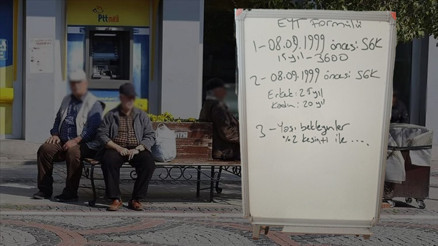 Pttmatik
EYT formülü
1-08.09.1999 öncesi SGK
15 yıl - 3600
2- 08.09.1999 öncesi SGK
Erkek: 25 yıl
Kadın: 20 yıl
3- Yaşı bekleyenler
%2 kesinti ile ....